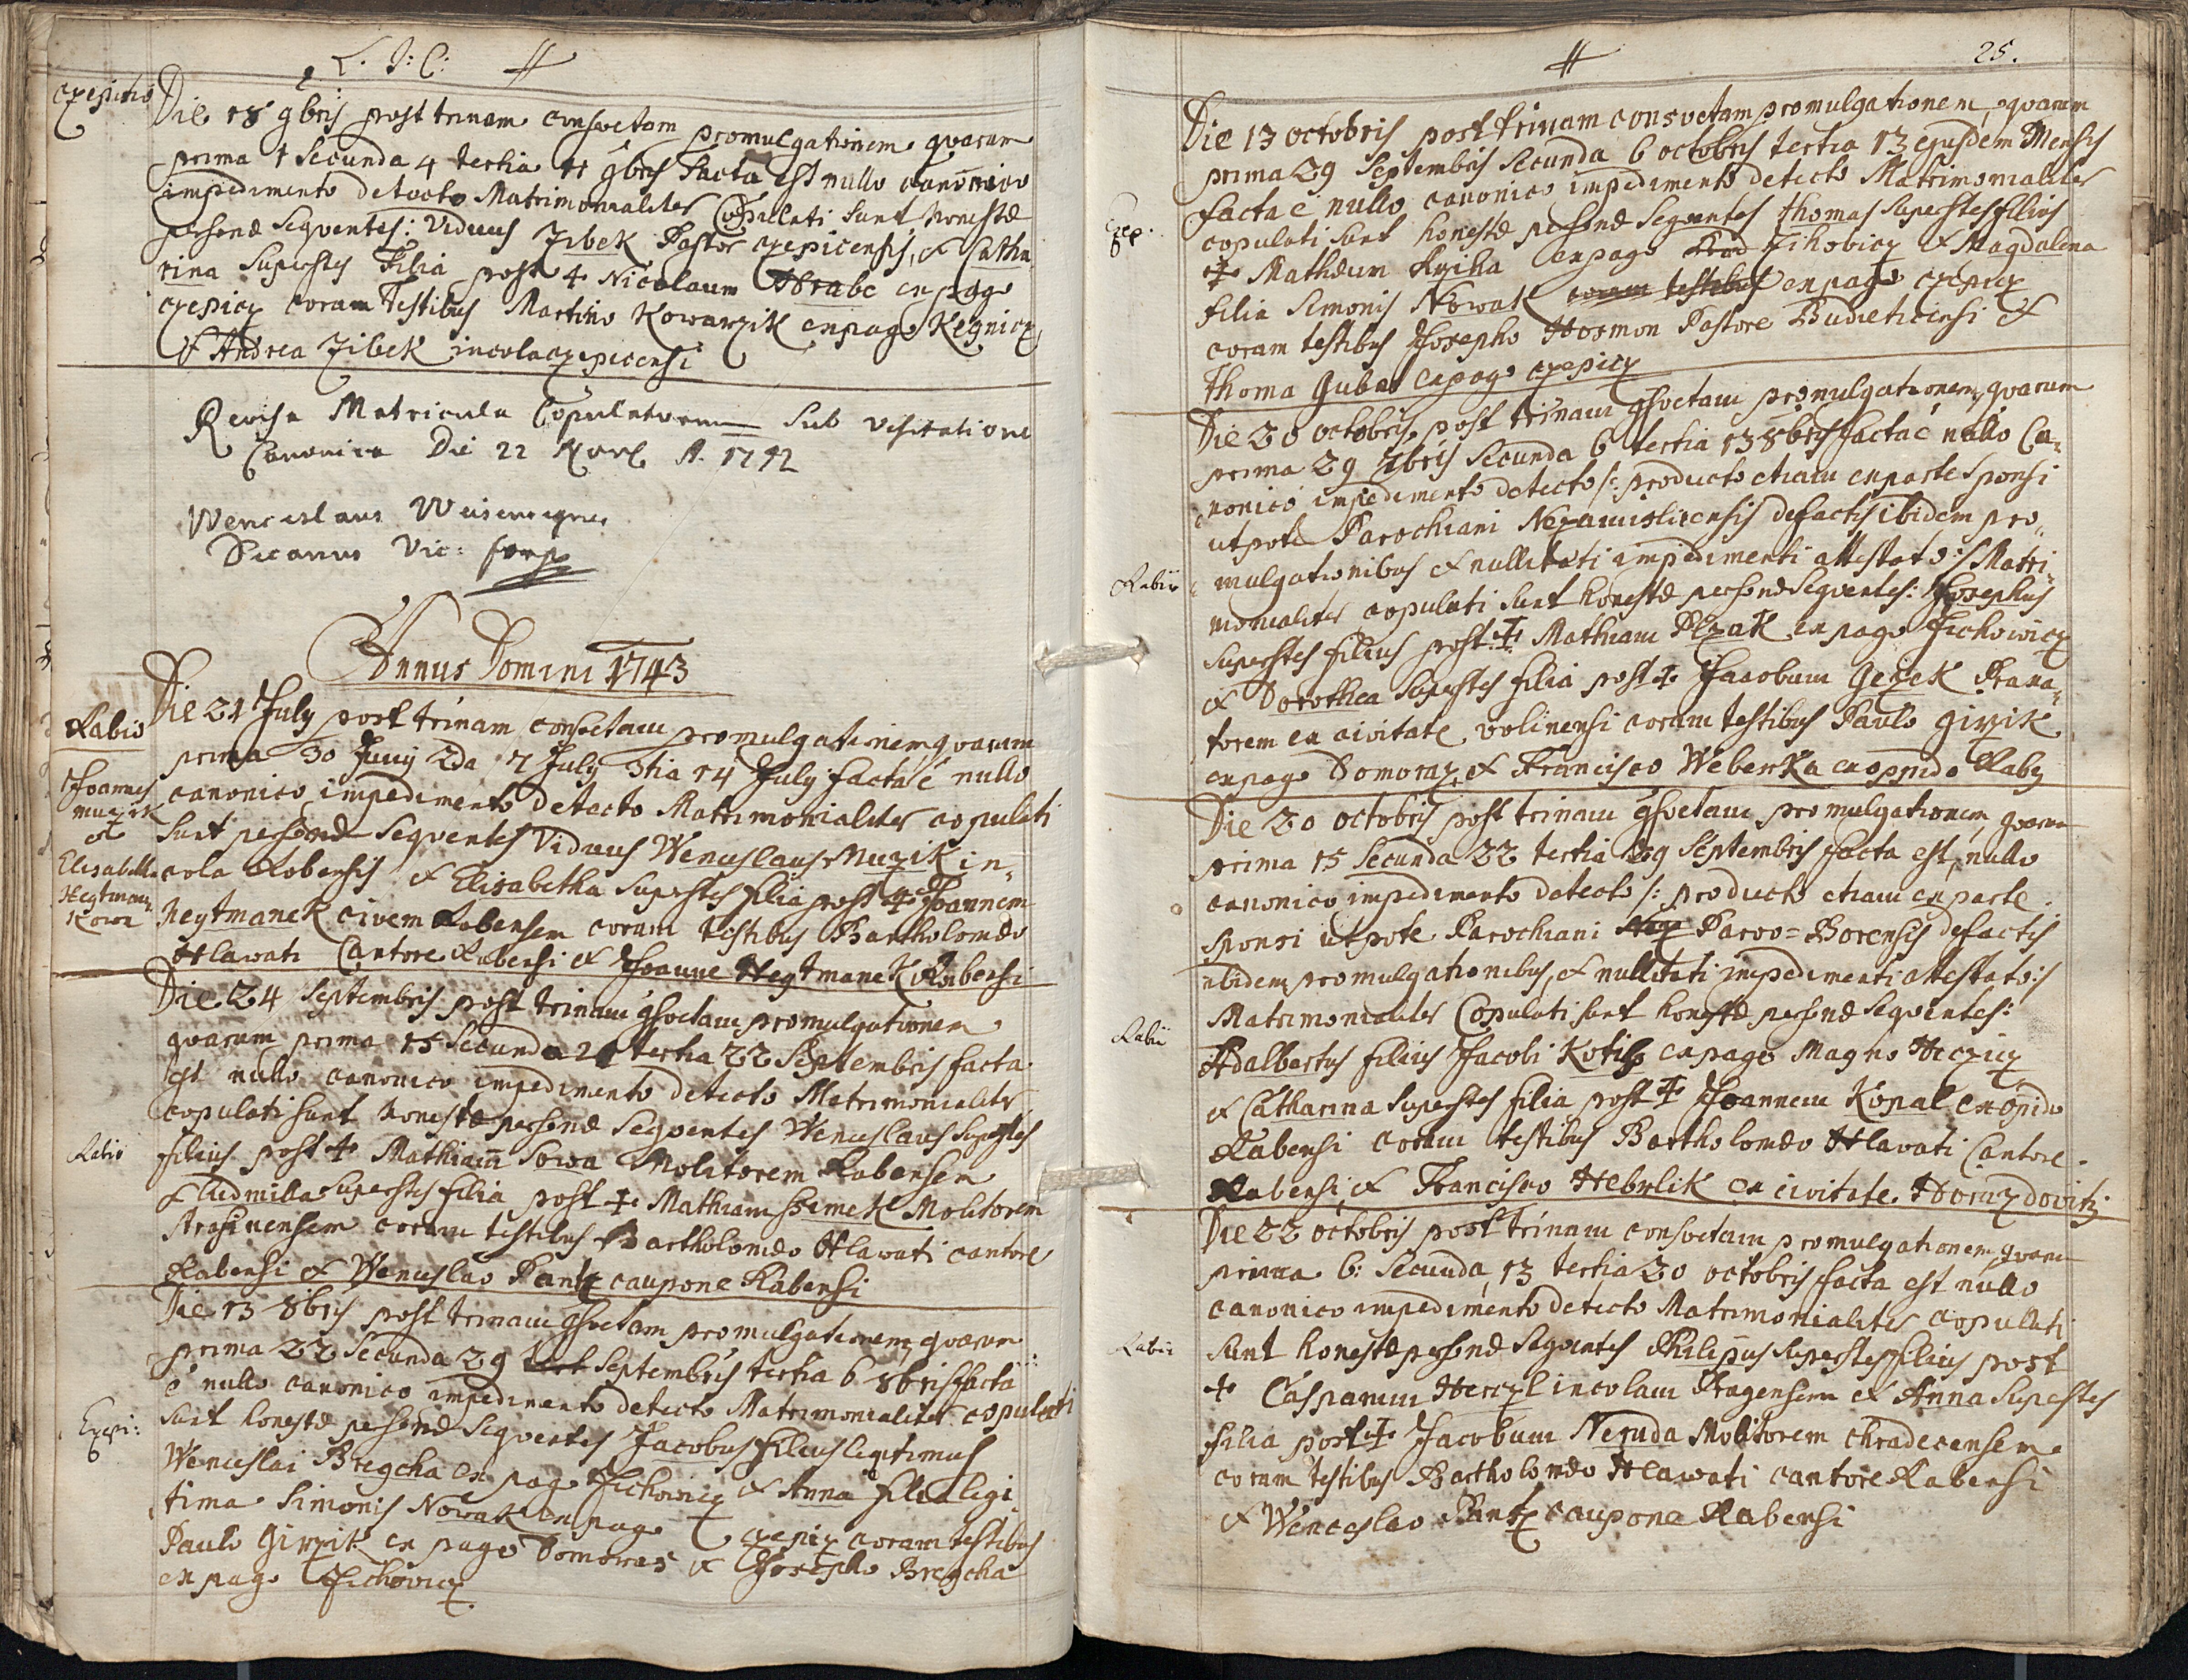 L. J: C:
Czepicio
Die 18 9bris post trinam consvetam promulgationem quarum
prima 1 Secunda 4 tertia 11 9bris facta est nullo canonico
impedimento detecto Matrimonialiter Copulati sunt honestæ
personæ Seqventes: Viduus Zibek Pastor czepicensis, & Catha
rina superstes Filia post ✝ Nicolaum Hrabe ex pago
czepicz coram Testibus Martino Kowarzik ex pago Kegnicz
& Andrea Zibek incola czepicensi
Revisa Matricula Copulatorum Sub Visitatione
Canonica Die 22 A. 1742
Wenceslaus
Decanus Vic:
Annus Domini 1743
Rabio
Joannes
Muzik
&
Elisabetha
Hegtman
Kowa
Die 21 July post trinam consvetam promulgationem, quarum
prima 30 Junij 2da 7 July 3tia 14 July facta é nullo
canonico impedimento detecto Matrimonialiter copulati
sunt personæ Seqventes Viduus Wenceslaus Muzik in-
cola Rabensis & Elisabetha Superstes filia post ✝ Joannem
Heytmanek civem Rabensem coram testibus Bartholomæo
Hlawati Cantore Rabensi & Joanne Hegtmanek Rabensi
Die 24 Septembris post trinam gsvetam promulgationem
quarum prima 15 Secunda 21 tertia 22 Septembris facta
est nullo canonico impedimento detecto Matrimonialiter
copulati sunt honestæ personæ Seqventes Wenceslaus Superstes
Rabio
filius post ✝ Mathiam Sowa Molitorem Rabensem
& Ludmilla Superstes filia post ✝ Mathiam Ssimek Molitorem
Strasinensem coram testibus Bartholomæo Hlawati cantore
Rabensi & Wenceslao Pantz caupone Rabensi
Die 13 8bris post trinam gsvetam promulgationem, quarum
prima 22 Secunda 29 Septembris tertia 6 8bris facta
é nullo canonico impedimento detecto Matrimonialiter copulati
Czepi:
sunt honestæ personæ Seqventes Jacobus filius legitimus
Wenceslai Bregcha ex pago Zichowicz & Anna filia legi
tima Simonis Nowak ex pago czepicz coram testibus
Paulo Girzik ex pago Domoraz & Josepho Bregcha
ex pago Zichovicz.
25.
Die 13 octobris post trinam consvetam promulgationem, quarum
prima 29 Septembris Secunda 6 octobris tertia 13 ejusdem Mensis
facta é nullo canonico impedimento detecto Matrimonialiter
Czep.
copulati sunt honestæ personæ Seqventes Thomas Superstes filius
✝ Mathæum ex pago Zihobicz & Magdalena
filia Simonis Nowak coram testibus ex pago czepicz
coram testibus Josepho Hosmon Pastore Budieticensi &
Thoma Gubat ex pago czepicz
Die 20 octobris post trinam gsvetam promulgationem, quarum
prima 29 7bris Secunda 6 tertia 13 8bris facta é nullo Ca-
nonico impedimento detecto /: producto etiam ex parte Sponsi
utpote Parochiani Nezamislicensis de factis ibidem pro-
Rabio
mulgationibus & nullitati impedimenti attestato :/ Matri-
monialiter copulati sunt honestæ personæ Seqventes: Josephus
Superstes filius post ✝ Mathiam Plzak ex pago Zichowicz
& Dorothea Superstes filia post ✝ Jacobum Gezek
torem ex civitate volinensi coram testibus Paulo Girzik
ex pago Domoraz & Francisco Weberka ex oppido Raby
Die 20 octobris post trinam gsvetam promulgationem, quarum
prima 15 Secunda 22 tertia 29 Septembris facta est, nullo
canonico impedimento detecto /: producto etiam ex parte
Sponsi utpote Parochiani Parvo=Borensis de factis
ibidem promulgationibus, & nullitati impedimenti attestato :/
Rabii
Matrimonialiter Copulati sunt honestæ personæ Seqventes:
Adalbertus filius Jacobi ex pago Magno Hicziz
& Catharina Superstes filia post ✝ Joannem Kopal ex opido
Rabensi coram testibus Bartholomæo Hlavati Cantore
Rabensi, & Francisco Hebrlik ex civitate Horazdovitz
Die 22 octobris post trinam consvetam promulgationem, quarum
prima 6: Secunda 13 tertia 20 octobris facta est nullo
canonico impedimento detecto Matrimonialiter copulati
Rabii
sunt honestæ personæ Seqventes Philipus Superstes filius post
✝ Casparum Herczl incolam Pragensem & Anna Superstes
filia post ✝ Jacobum Neruda Molitorem chradecensem
coram testibus Bartholomæo Hlawati cantore Rabensi
& Wenceslao Pantz caupone Rabensi